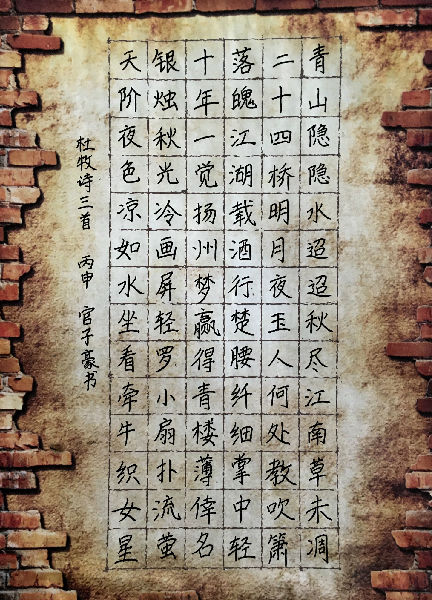 青山隐隐水迢迢秋尽江南草未凋
二十四桥明月夜玉人何处教吹箫
落魄江湖载酒行楚腰纤细掌中轻
十年一觉扬州梦赢得青楼薄倖名
银烛秋光冷画屏轻罗小扇扑流萤
天阶夜色凉如水坐看牵牛织女星
杜牧诗三首 丙申 官子豪书